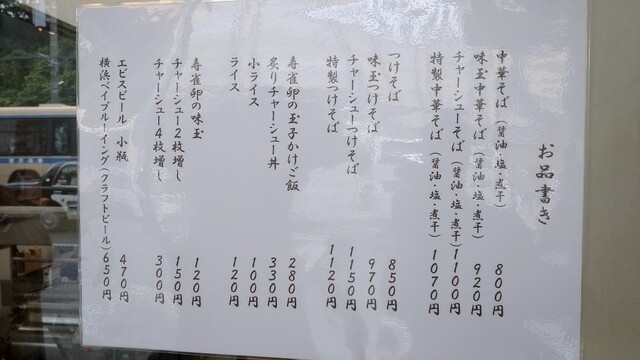 お品書き
中華そば（醤油・塩・煮干） 800円
味玉中華そば（醤油・塩・煮干） 920円
チャーシューそば（醤油・塩・煮干） 1100円
特製中華そば（醤油・塩・煮干） 1070円
つけそば 850円
味玉つけそば 970円
チャーシューつけそば 1150円
特製つけそば 1120円
寿雀卵の玉子かけご飯 280円
炙りチャーシュー丼 330円
小ライス 100円
ライス 120円
寿雀卵の味玉 120円
チャーシュー2枚増し 150円
チャーシュー4枚増し 300円
エビスビール 小瓶 470円
横浜ベイブルーイング（クラフトビール） 650円